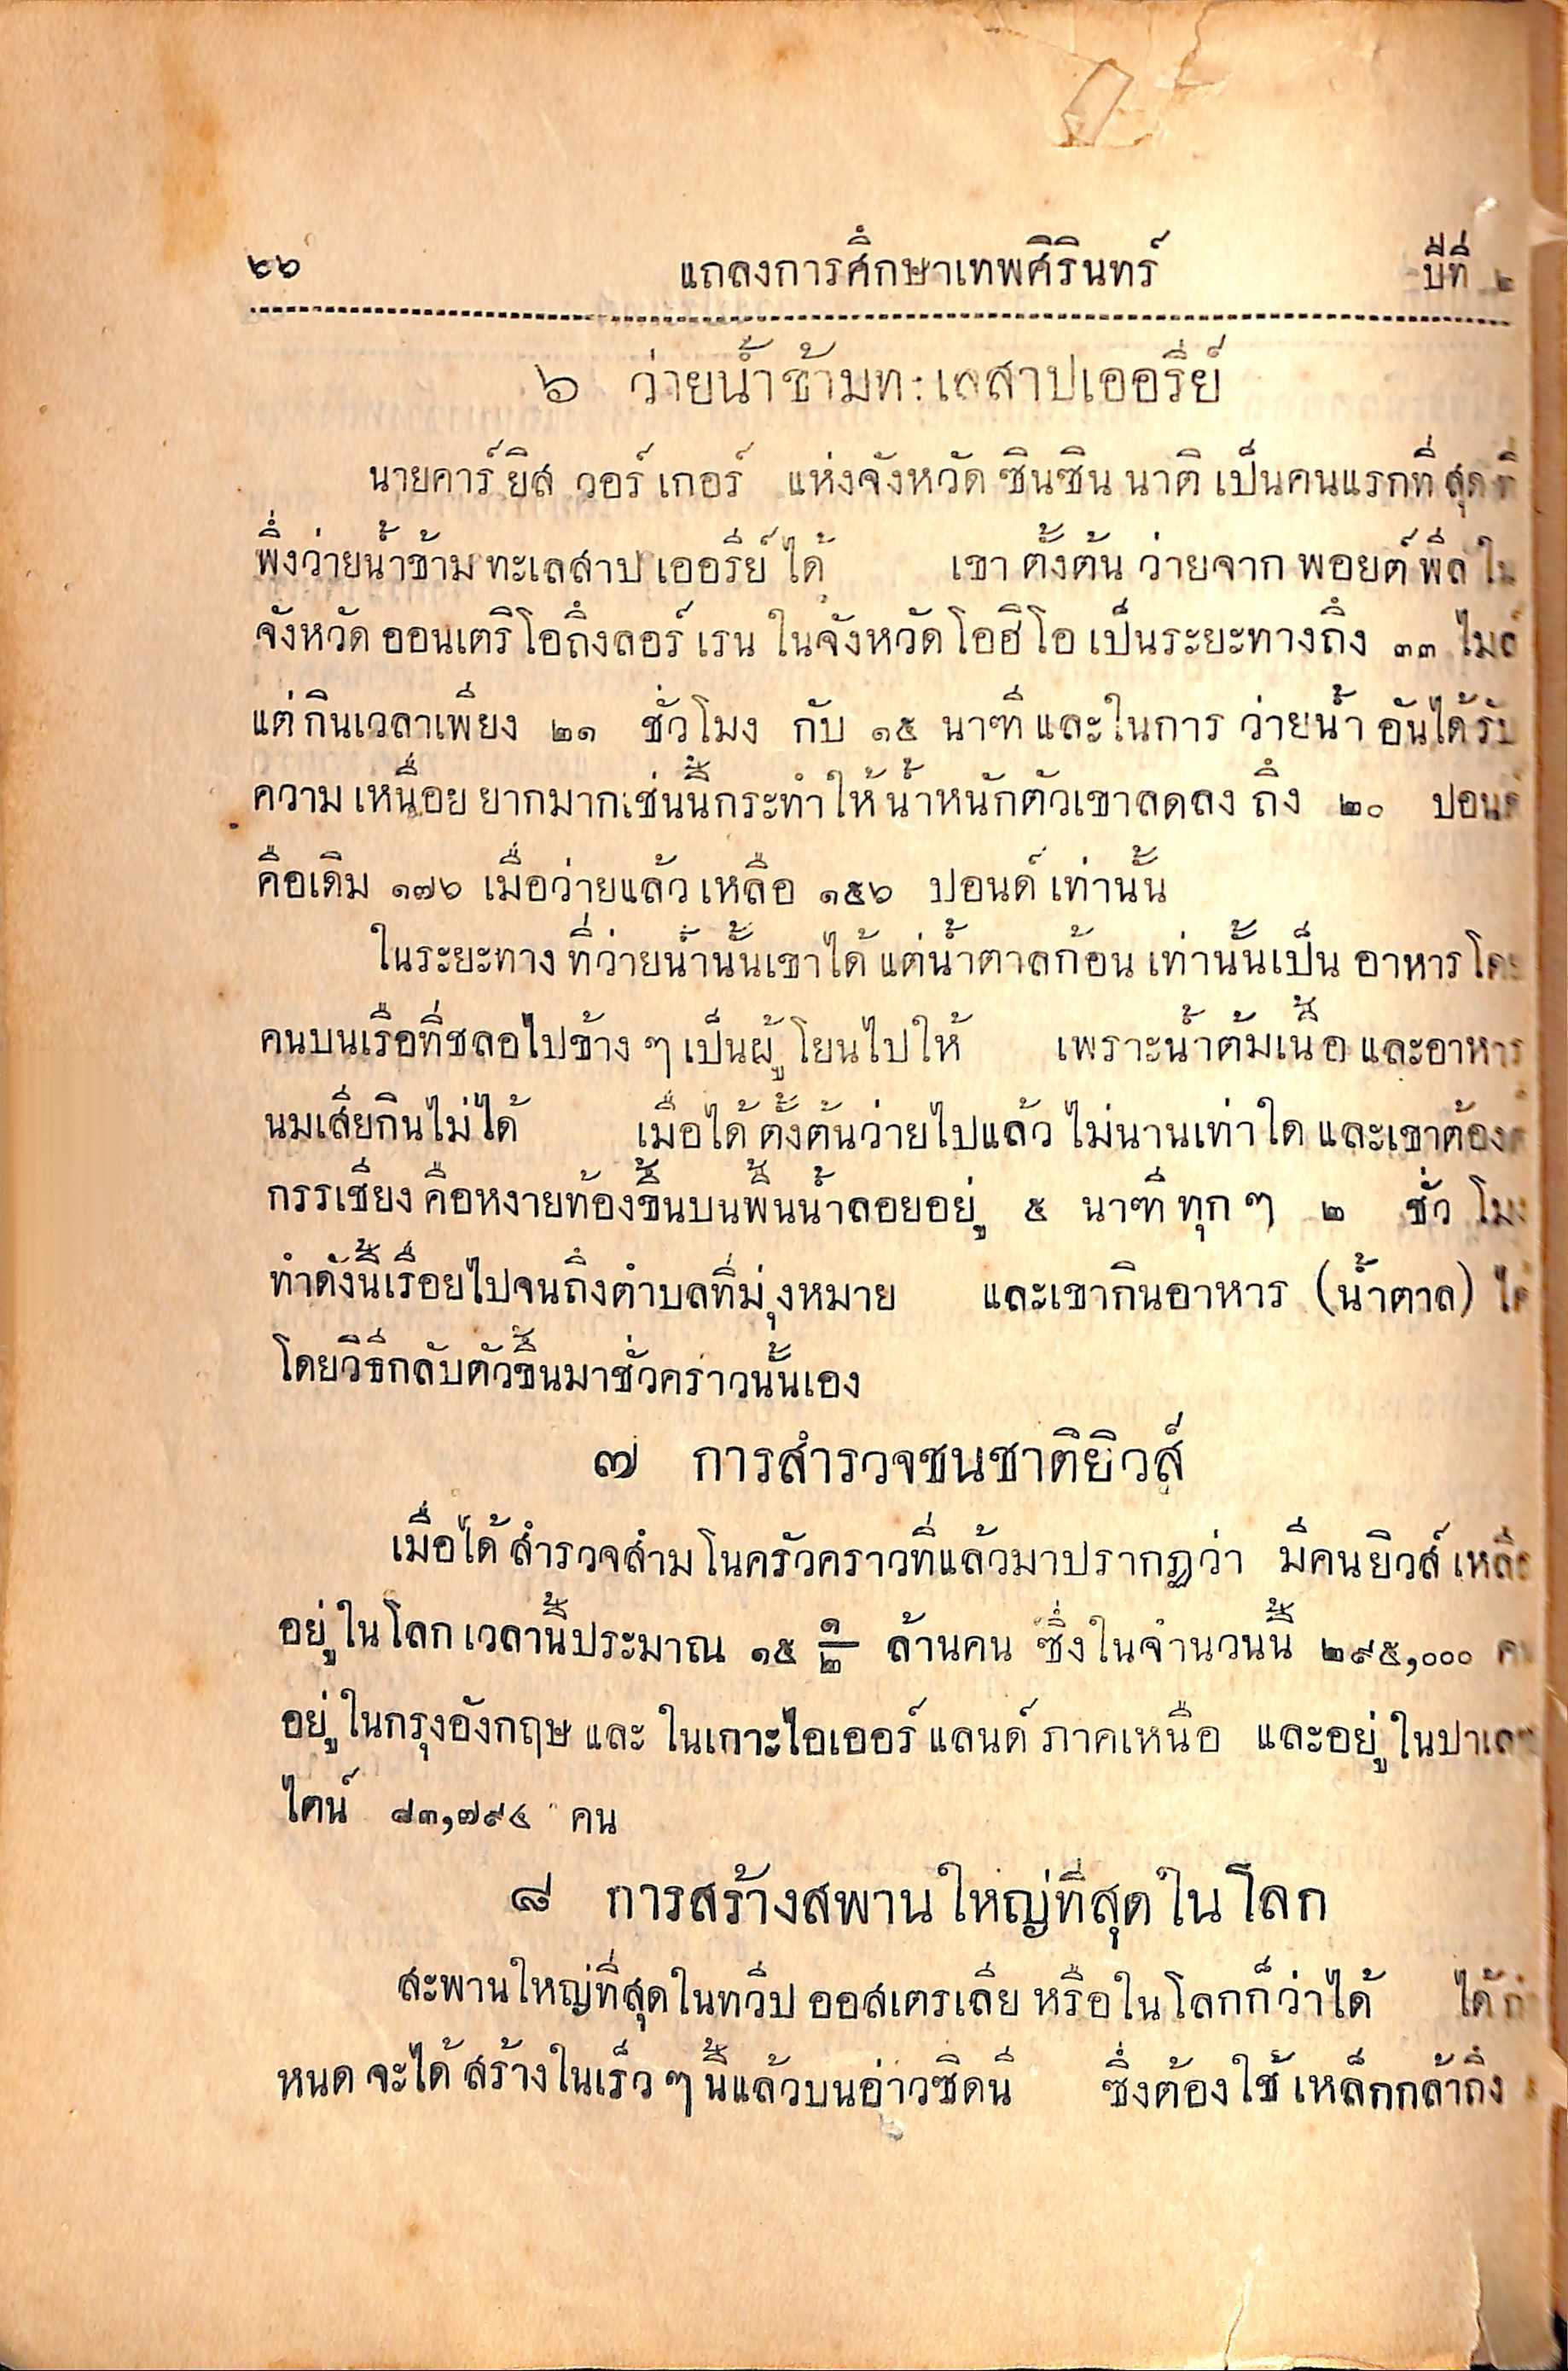 ๒๖ แถลงการศึกษาเทพศิรินทร์ ปีที่ ๒
๖ ว่ายน้ำข้ามทะเลสาปเออรี่ย์
นายคาร์ ยิส วอร์ เกอร์ แห่งจังหวัด ซินซิน นาติ เป็นคนแรกที่ สุด ที่
พึ่งว่ายน้ำข้าม ทะเลสาป เออรีย์ ได้ เขา ตั้งต้น ว่ายจาก พอยต์ พีล ใน
จังหวัด ออนเตริโอถึงลอร์ เรน ในจังหวัด โอฮิโอ เป็นระยะทางถึง ๓๓ ไมล์
แต่ กินเวลาเพียง ๒๑ ชั่วโมง กับ ๑๕ นาฑี และในการ ว่ายน้ำ อันได้รับ
ความ เหนื่อย ยากมากเช่นนี้กระทำให้ น้ำหนักตัวเขาลดลง ถึง ๒๐ ปอนด์
คือเดิม ๑๗๖ เมื่อว่ายแล้ว เหลือ ๑๕๖ ปอนด์ เท่านั้น
ในระยะทาง ที่ว่ายน้ำนั้นเขาได้ แต่น้ำตาลก้อน เท่านั้นเป็น อาหาร โดย
คนบนเรือที่ชลอไปข้าง ๆ เป็นผู้ โยนไปให้ เพราะน้ำต้มเนื้อ และอาหาร
นมเสียกินไม่ได้ เมื่อได้ ตั้งต้นว่ายไปแล้ว ไม่นานเท่าใด และเขาต้อง
กรรเชียง คือหงายท้องขึ้นบนพื้นน้ำลอยอยู่ ๕ นาฑี ทุก ๆ ๒ ชั่ว โมง
ทำดังนี้เรื่อยไปจนถึงตำบลที่มุ่งหมาย และเขากินอาหาร (น้ำตาล) ได้
โดยวิธีกลับตัวขึ้นมาชั่วคราวนั้นเอง
๗ การสำรวจชนชาติยิวส์
เมื่อได้ สำรวจสำม โนครัวคราวที่แล้วมาปรากฏว่า มีคนยิวส์ เหลือ
อยู่ ในโลก เวลานี้ประมาณ ๑๕ ๑/๒ ล้านคน ซึ่งในจำนวนนี้ ๒๙๕,๐๐๐ คน
อยู่ ในกรุงอังกฤษ และ ในเกาะไอเออร์ แลนด์ ภาคเหนือ และอยู่ ในปาเลส
ไตน์ ๘๓,๗๙๔ คน
๘ การสร้างสพาน ใหญ่ที่สุด ใน โลก
สะพานใหญ่ที่สุดในทวีป ออสเตรเลีย หรือในโลกก็ว่าได้ ได้ กำ
หนด จะได้ สร้างในเร็ว ๆ นี้แล้วบนอ่าวซิดนี ซึ่งต้องใช้ เหล็กกล้าถึง